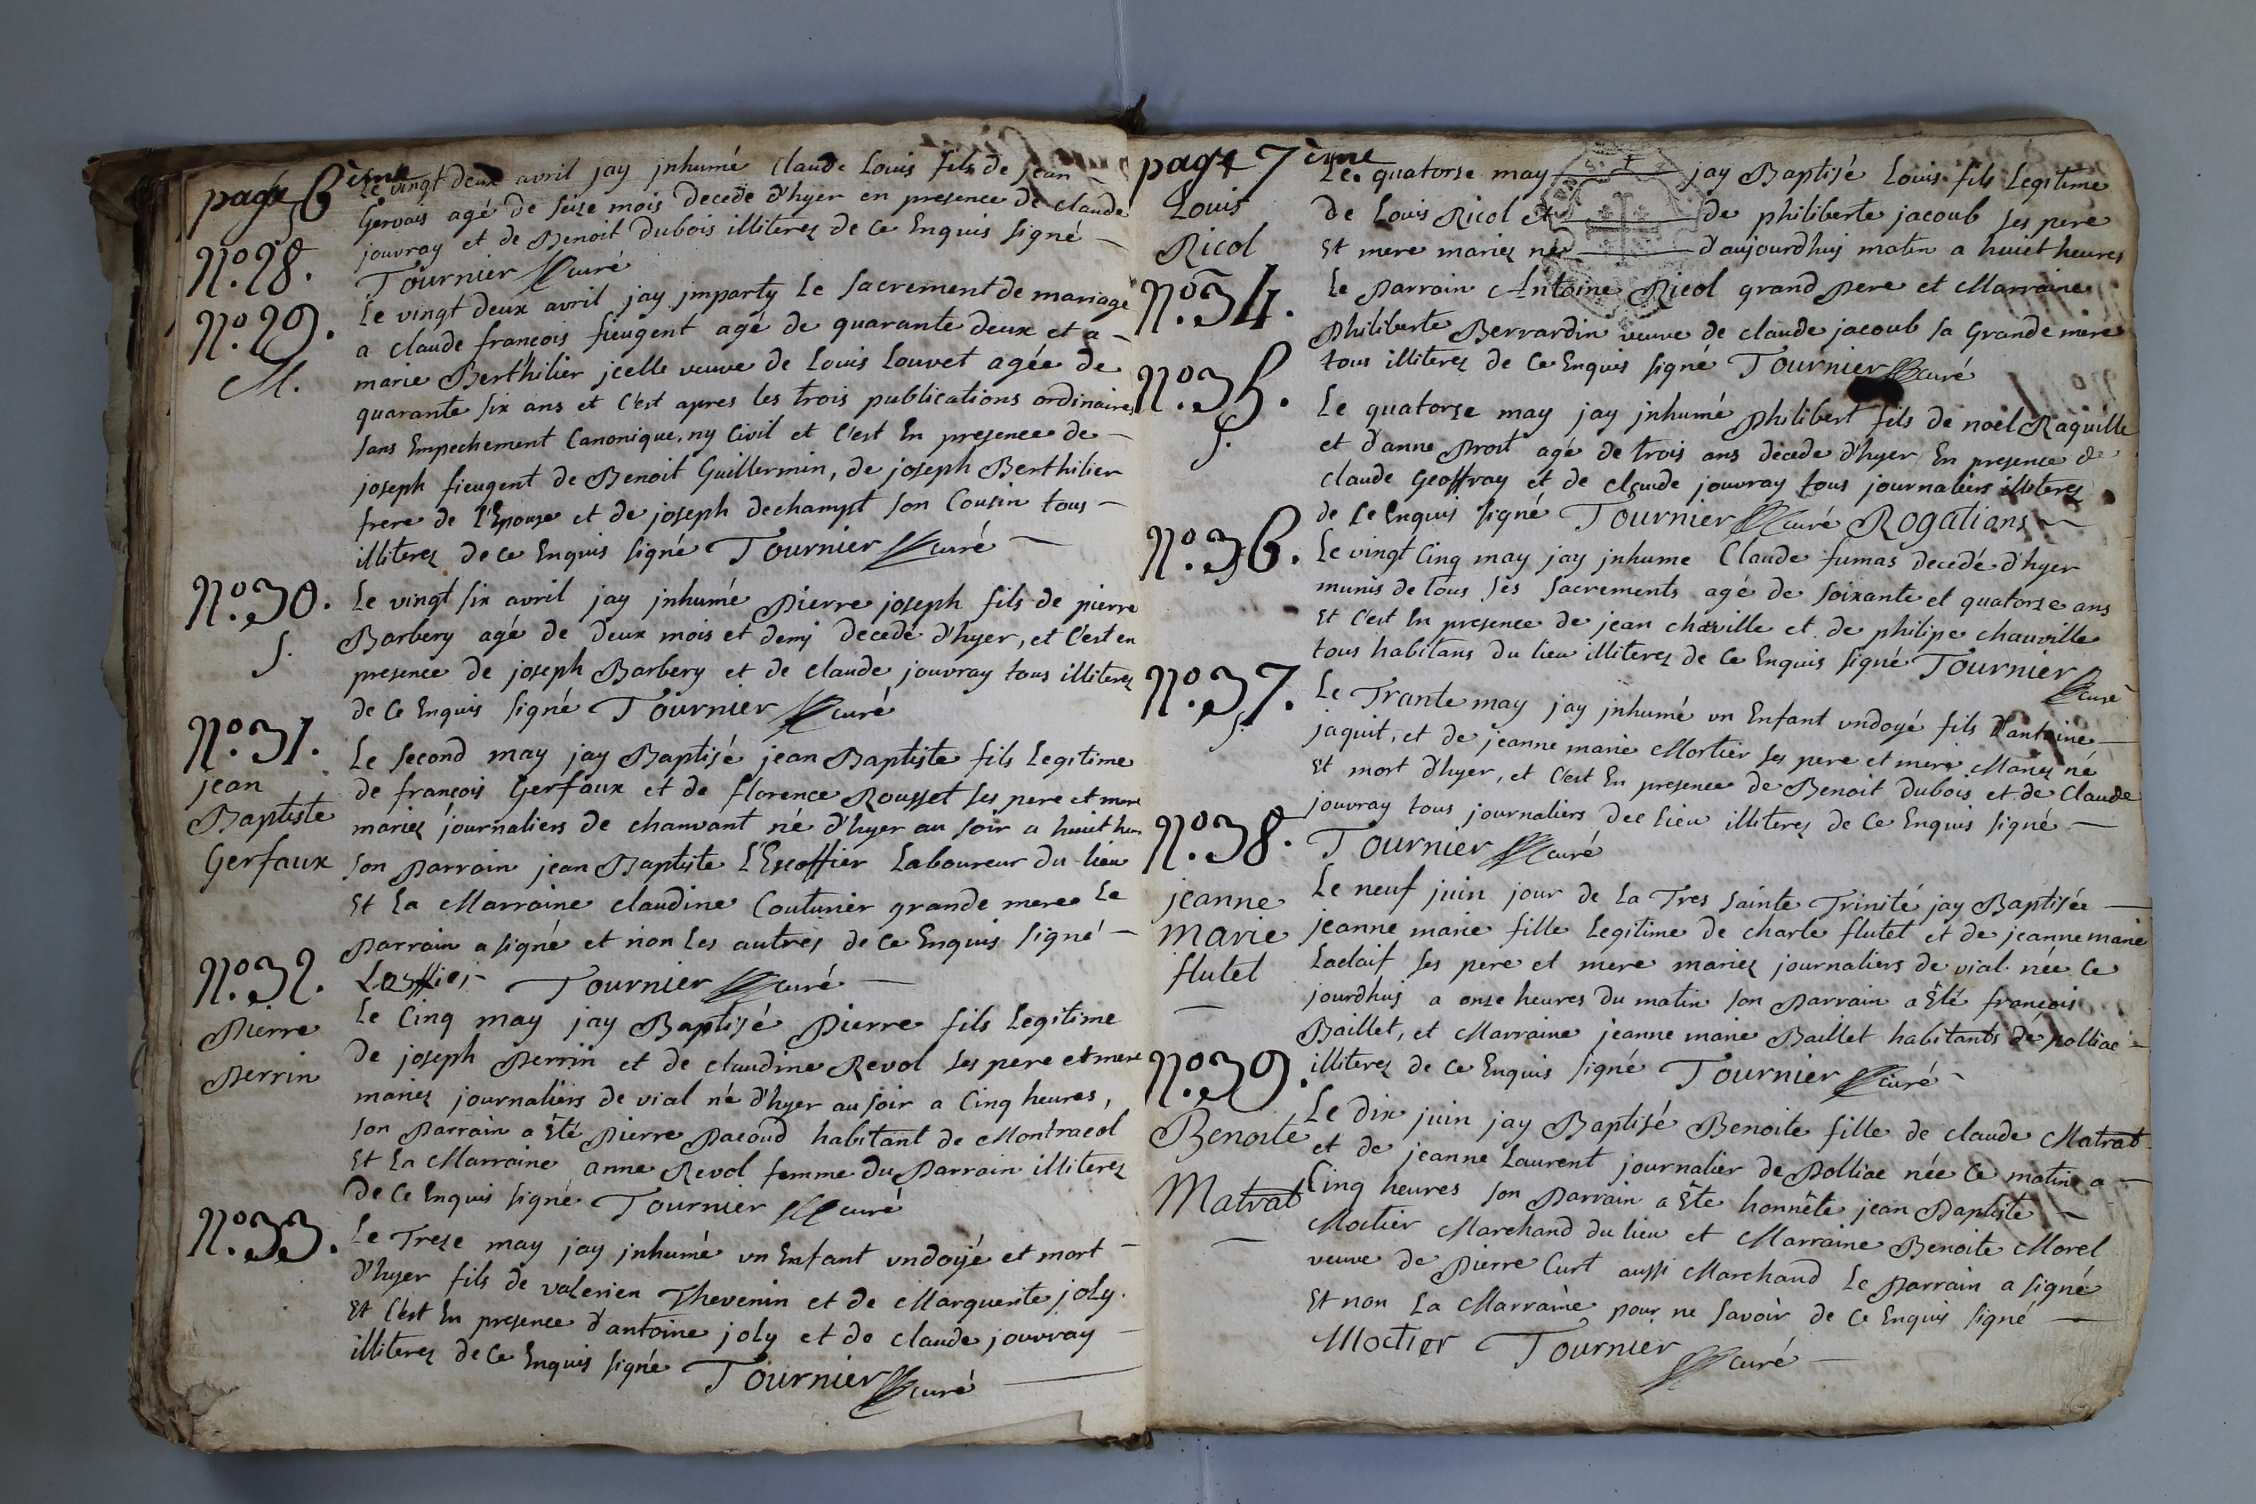 page 6ème
Le vingt deux avril jay jnhumé Claude Louis fils de jean
Gervais agé de seize mois decedé d'hyer en presence de claude
N.o 28.
jouvray et de Benoit Dubois illiterez de ce Enquis signé
Tournier curé
N.o 29.
M.
Le vingt deux avril jay jmparty Le sacrement de mariage
a claude francois fieugent agé de quarante deux et a
marie Berthilier jcelle veuve de Louis Louvet agée de
quarante six ans et c'est apres les trois publications ordinaires
sans Empechement Canonique, ny Civil et c'est En presence de
joseph fieugent de Benoit Guillermin, de joseph Berthilier
frere de l'Epouse et de joseph dechampt son Cousin tous
illiterez de ce Enquis signé Tournier curé
N.o 30.
S.
Le vingt six avril jay jnhumé Pierre joseph fils de pierre
Barbery agé de deux mois et demj decedé d'hyer, et c'est en
presence de joseph Barbery et de claude jouvray tous illiterez
de ce Enquis signé Tournier curé
N.o 31.
jean
Baptiste
Gerfaux
Le second may jay Baptisé jean Baptiste fils Legitime
de francois Gerfaux et de florence Rousset ses pere et mere
mariez journaliers de chanvant né d'hyer au soir a huict heu
son Parrain jean Baptiste L'Escoffier Laboureur du lieu
Et La Marraine claudine Couturier grande mere Le
Parrain a signé et non Les autres de ce Enquis signé
Tournier curé
N.o 32.
Pierre
Perrin
Le Cinq may jay Baptisé Pierre fils Legitime
de joseph Perrin et de claudine Revol ses pere et mere
mariez journaliers de vial né d'hyer au soir a Cinq heures,
son Parrain a Eté Pierre Pacoud habitant de Montracol
Et La Marraine anne Revol femme du Parrain illiterez
de Ce Enquis signé Tournier curé
N.o 33.
Le Treze may jay jnhumé vn Enfant vndoyé et mort
d'hyer fils de valerien Thevenin et de Marguerite joly.
Et c'est En presence d'antoine joly et de claude jouvray
illiterez de Ce Enquis signé Tournier curé
page 7ème
Louis
Ricol
N.o 34.
Le quatorze may jay Baptisé Louis fils Legitime
de Louis Ricol et de philiberte jacoub ses pere
Et mere mariez né d'aujourdhuj matin a huict heures
Le Parrain Antoine Ricol grand Pere et Marraine
Philiberte Berrardin veuve de claude jacoub sa Grande mere
tous illiterez de Ce Enquis signé Tournier curé
N.o 35.
S.
Le quatorze may jay jnhumé Philibert fils de noël Raquille
et d'anne Prost agé de trois ans decedé d'hyer En presence de
claude Geoffray et de claude jouvray tous journaliers illiterez
de Ce Enquis signé Tournier curé Rogations
N.o 36.
Le vingt Cinq may jay jnhume Claude fumas decedé d'hyer
munis de tous ses sacrements agé de soixante et quatorze ans
Et c'est En presence de jean charville et de philipe chauville
tous habitans du lieu illiterez de Ce Enquis signé Tournier
curé
N.o 37.
S.
Le Trante may jay jnhumé vn Enfant vndoyé fils d'antoine
jaquit, et de jeanne marie Mortier ses pere et mere Mariez né
Et mort d'hyer, et C'est En presence de Benoit dubois et de Claude
jouvray tous journaliers du lieu illiterez de Ce Enquis signé
Tournier curé
N.o 38.
jeanne
marie
flutet
Le neuf juin jour de La Tres sainte Trinité jay Baptisée
jeanne marie fille Legitime de charle flutet et de jeanne marie
Ladaif ses pere et mere mariez journaliers de vial née Ce
jourdhuj a onze heures du matin son Parrain a Eté francois
Baillet, et Marraine jeanne marie Baillet habitants de polliac
illiterez de Ce Enquis signé Tournier curé
N.o 39.
Benoite
Matrat
Le Dix juin jay Baptisé Benoite fille de claude Matrat
et de jeanne Laurent journalier de Polliac née Ce matin a
Cinq heures son Parrain a Ete honnête jean Baptiste
Moctier Marchand du lieu et Marraine Benoite Morel
veuve de Pierre Curt aussi Marchand Le Parrain a signé
Et non La Marraine pour ne savoir de Ce Enquis signé
Moctier Tournier curé